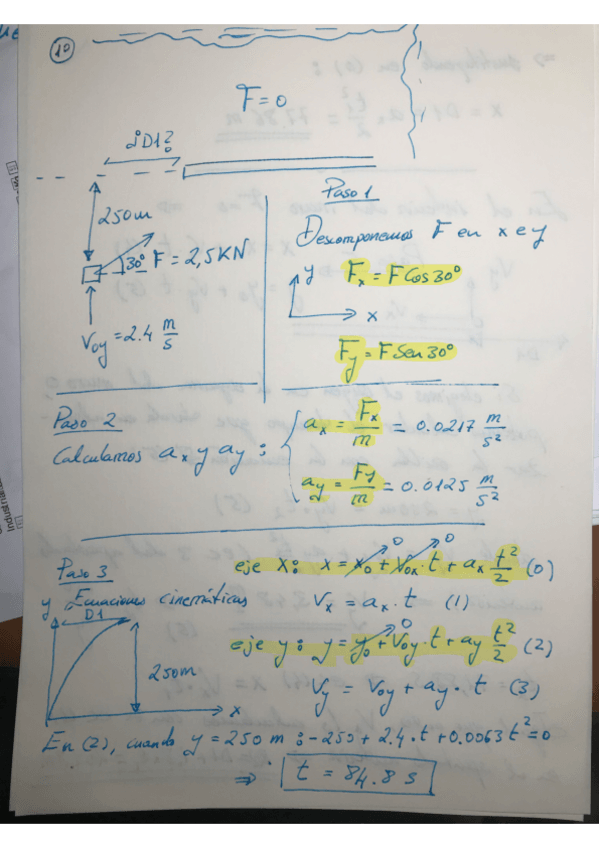 1º
F=0
¿D1?
250m
30º F = 2,5KN
Voy = 2.4 m/s
Paso 1
Descomponemos F en x e y
y
Fx = F Cos 30º
x
Fy = F Sen 30º
Paso 2
Calculamos ax y ay :
ax = Fx/m = 0.0217 m/s²
ay = Fy/m = 0.0125 m/s²
Paso 3
y Ecuaciones cinemáticas
eje x: x = x0 + Vox · t + ax t²/2 (0)
0 0
Vx = ax · t (1)
eje y: y = y0 + Voy · t + ay t²/2 (2)
0
Vy = Voy + ay · t (3)
D1
250m
x
En (2), cuando y = 250 m : -250 + 2.4 · t + 0.0063 t² = 0
⇒ t = 84.8 s